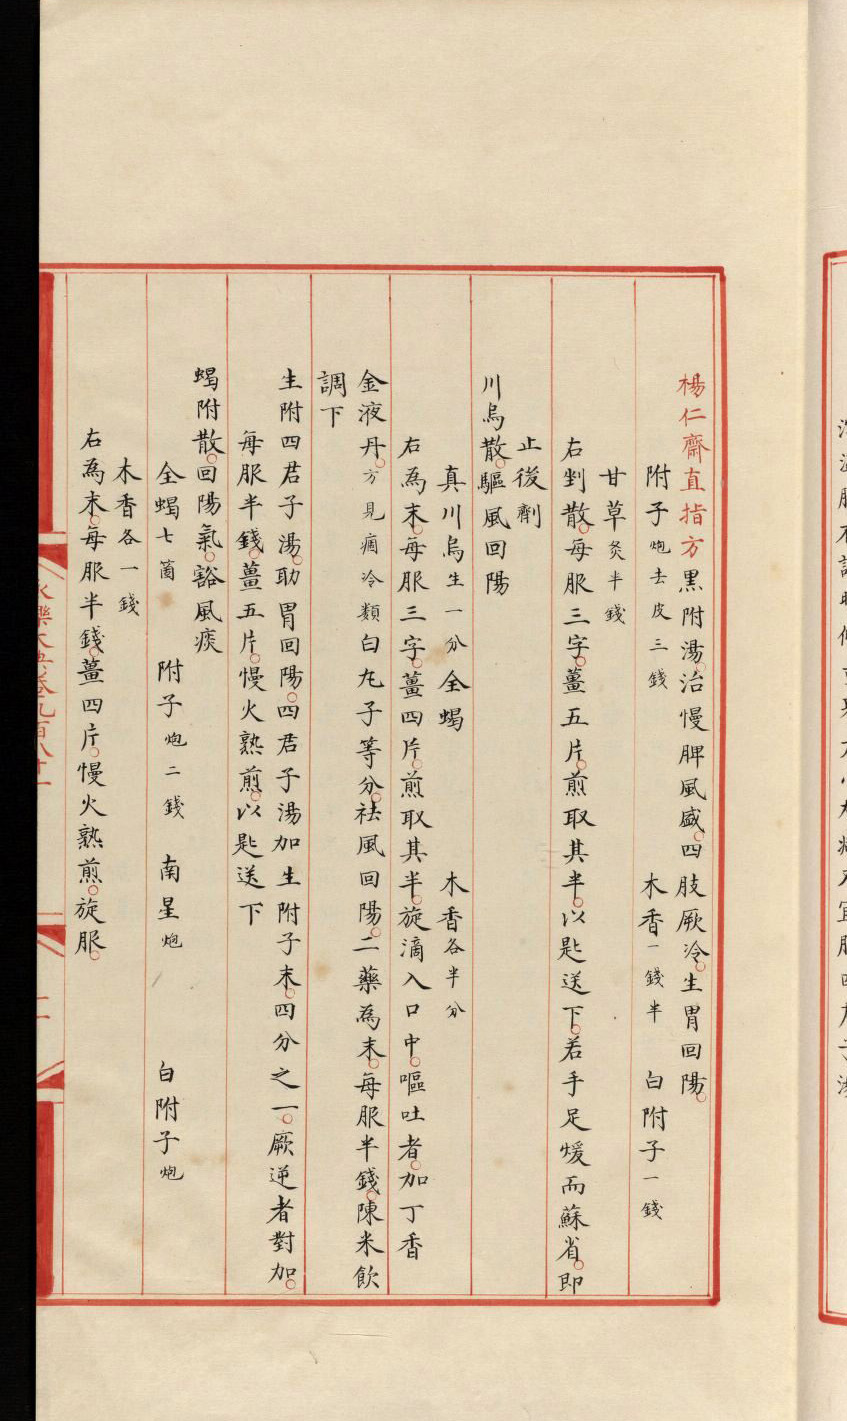 楊仁齋直指方黑附湯。治慢脾風盛。四肢厥冷。生胃回陽。
附子炮去皮三錢 木香一錢半 白附子一錢
甘草炙半錢
右剉散。每服三字。薑五片。煎取其半。以匙送下。若手足煖而蘇省。即
止後劑
川烏散。驅風回陽
真川烏生一分全蝎 木香各半分
右為末。每服三字。薑四片。煎取其半。旋滴入口中。嘔吐者。加丁香
金液丹。方見痼冷類白丸子等分。祛風回陽。二藥為末。每服半錢。陳米飲
調下
生附四君子湯。助胃回陽。四君子湯加生附子末。四分之一。厥逆者對加。
每服半錢。薑五片。慢火熟煎。以匙送下
蝎附散。回陽氣。豁風痰
全蝎七箇 附子炮二錢 南星炮 白附子炮
木香各一錢
右為末。每服半錢。薑四片。慢火熟煎。旋服。
永樂大典卷九百八十一